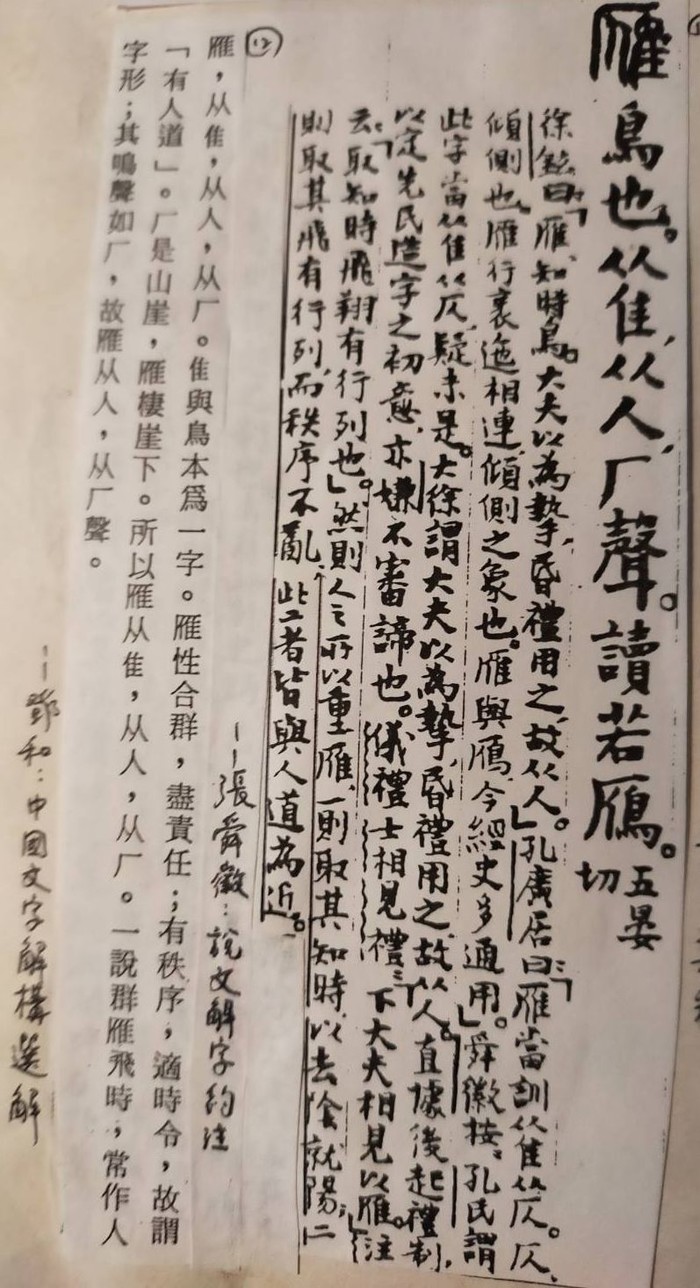 雁鳥也。从隹,从人,厂聲。讀若鴈。五晏切
徐鉉曰:「雁,知時鳥。大夫以為摯,昏禮用之,故从人。」孔廣居曰:「雁當訓从隹从仄。仄,
傾側也。雁行衺迤相連,傾側之象也。雁與鴈,今經史多通用。」舜徽按:孔氏謂
此字當从隹从仄,疑未是。大徐謂大夫以為摯,昏禮用之,故从人。直據後起禮制,
以定先民造字之初意,亦嫌不審諦也。儀禮士相見禮:「下大夫相見以雁。」注
云:「取知時飛翔有行列也。」然則人之所以重雁,一則取其知時以去陰就陽;二
則取其飛有行列,而秩序不亂,此二者皆與人道為近。
——張舜徽:說文解字約注
⑫
雁,从隹,从人,从厂。隹與鳥本爲一字。雁性合群,盡責任;有秩序,適時令,故謂
「有人道」。厂是山崖,雁棲崖下。所以雁从隹,从人,从厂。一說群雁飛時,常作人
字形;其鳴聲如厂,故雁从人,从厂聲。
——鄧和:中國文字解構選解